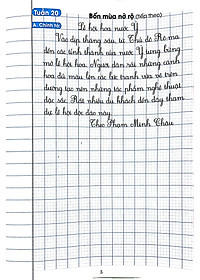 Tuần 20
A. Chính tả
Bốn mùa nở rộ (tiếp theo)
Lễ hội hoa nước Ý
Vào dịp tháng sáu, từ Thủ đô Rô-ma
đến các tỉnh thành của nước Ý tưng bừng
mở lễ hội hoa. Người dân rải những cánh
hoa đủ màu lên các bức tranh vừa vẽ trên
đường tạo nên những tác phẩm nghệ thuật
độc sắc. Rất nhiều du khách đến đây tham
dự lễ hội độc đáo này.
Theo Phạm Minh Châu
5